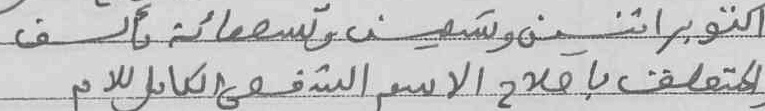 اكتوبر اثنين وتسعين وتسعمائة وألف
المتعلق باصلاح الاسم الشخصي الكامل للام